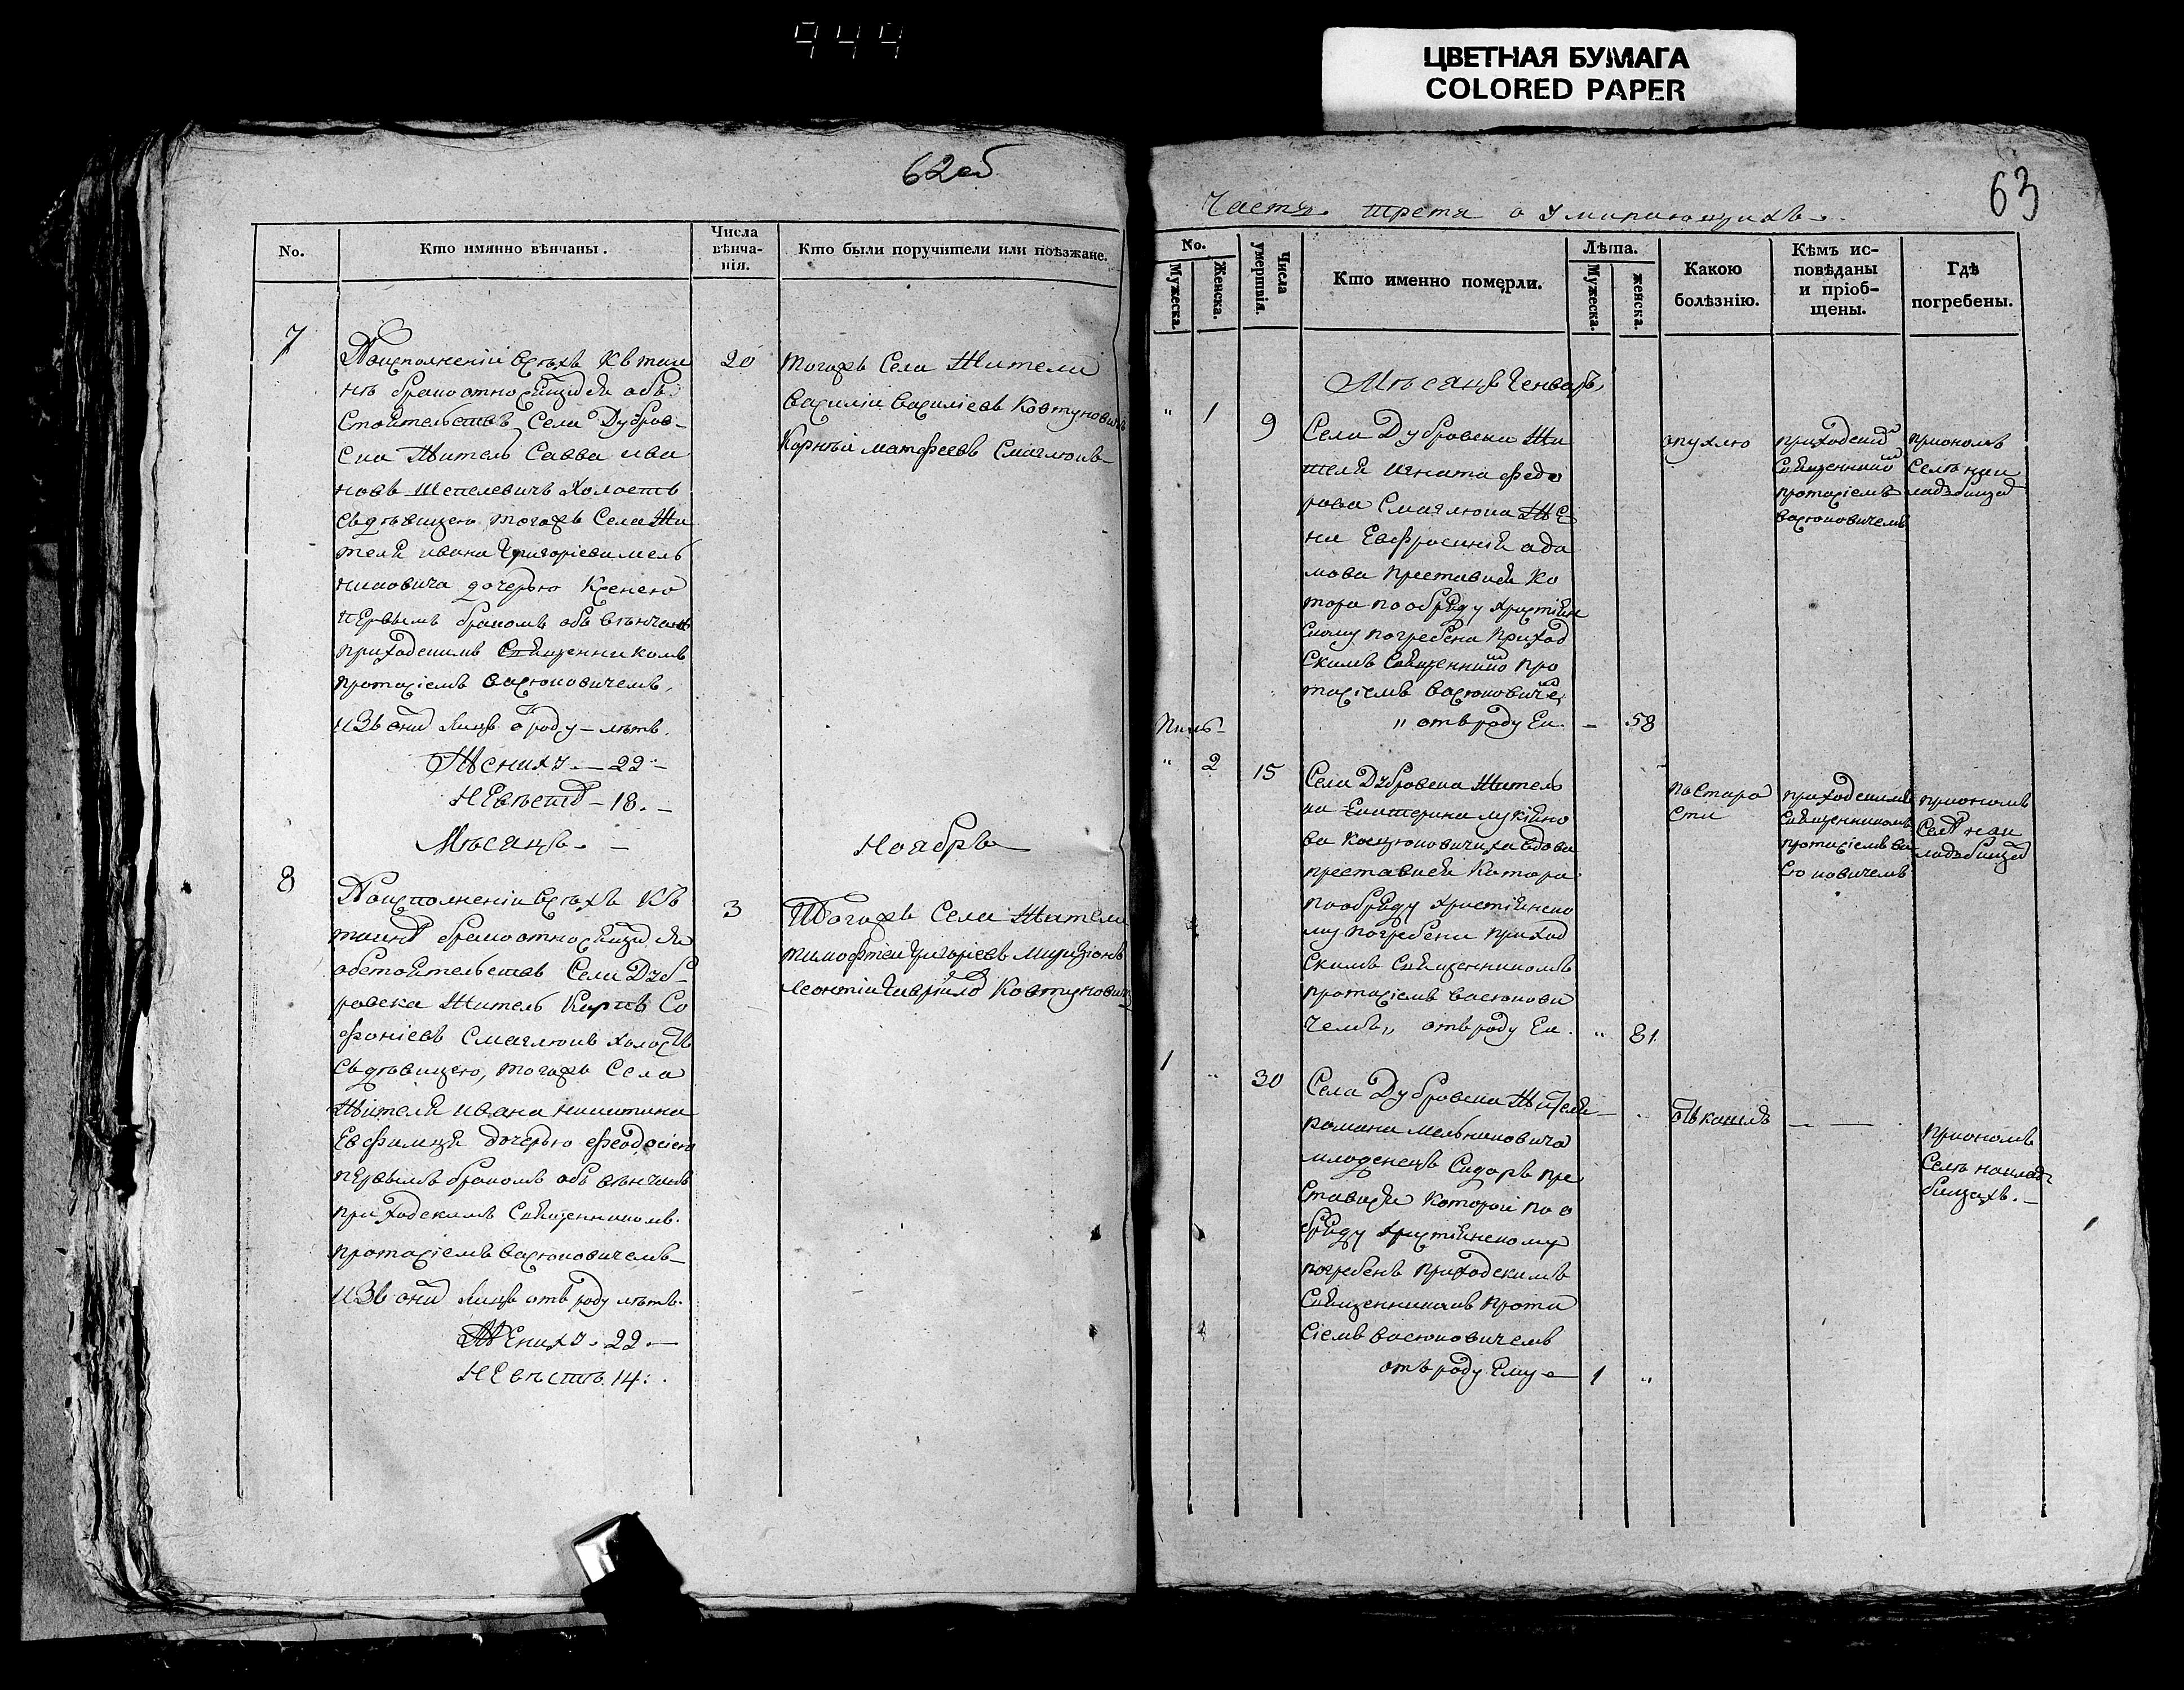 944
ЦВЕТНАЯ БУМАГА
COLORED PAPER
62об
No.
Кто имянно вѣнчаны.
Числа
вѣнча-
нія.
Кто были поручители или поѣзжане.
7
20
Села Дубров-
ска Житель Савва Ива
новъ Шепелевичъ Холостъ
съдѣвицею тогожъ Села Жи
теля ивана Григоріева мель
никовича дочерью Ксенею
пЕрвымъ бракомъ обвѣнчанъ
приходскимъ Священникомъ
протасіемъ васюковичемъ,
изъ онид лицъ о роду – лѣтъ.
Жениху. – 22 –
НЕвѣстѣ – 18. –
тогожъ Села Жители
Василіи Василіевъ Ковтуновичъ
Корнѣй матфеевъ Смаглюкъ
Мѣсяцъ. –
Ноябрь
8
3
обстоятельствъ Села Дуб-
ровска Житель Карпъ Со
фоніевъ Смаглюкъ холостъ
съдѣвицею, тогожъ Села
Жителя ивана никитина
дочерью феодосіею
пЕрвымъ бракомъ обвѣнчанъ
приходскимъ Священникомъ.
протасіемъ васюковичемъ –
изъ онид лицъ отъ роду лѣтъ.
ЖЕниху. 22. –
НЕвѣстѣ. 14:.
Тогожъ Села Жители
тимофтей григоріевъ
леонтіи Ковтуновичъ
63
Часть третя о Умирающихъ.
No.
Мужеска.
Женска.
Числа
умертвія.
Кто именно померли.
Лѣта.
Мужеска.
женска.
Какою
болѣзнію.
Кѣмъ ис-
повѣданы
и пріоб-
щены.
Гдѣ
погребены.
Мѣсяцъ Генварь,
" 1 9
Села Дубровска Жи
теля игната федо
рова Смаглюка Же
на Евфросинія ада
мова преставися Ко
тора по обряду христіян
скому погребена приход
скимъ Священнико про
тасіемъ васюковиче,
" отъ роду Еи. – 58
опухлю
приходским
Священнико
протасіемъ
васюковичемъ
приономъ
Селѣ нак
ладъбищахъ
" 2 15
Села Дубровска Житель
ка Екатерина лукіяно
ва вдова
преставися Котора
пообряду христіянско
му погребена приход
скимъ Священникомъ
протасіемъ васюкови
чемъ,, отъ роду Еи. " 81
по Старо
сти
приходскимъ
Священникомъ
протасіемъ ва
сюковичемъ
приономъ
Селѣ нак
ладъбищахъ
1 " 30
Села Дубровска Жителя
романа мельниковича
младенецъ Сидоръ пре
ставися Которои по о
бряду христіянскому
погребенъ приходскимъ
Священникомъ прота
сіемъ васюковичемъ
отъ роду Ему – 1 "
отъ кашлѣ
– –
приономъ
Селѣ наклад
бищахъ. –